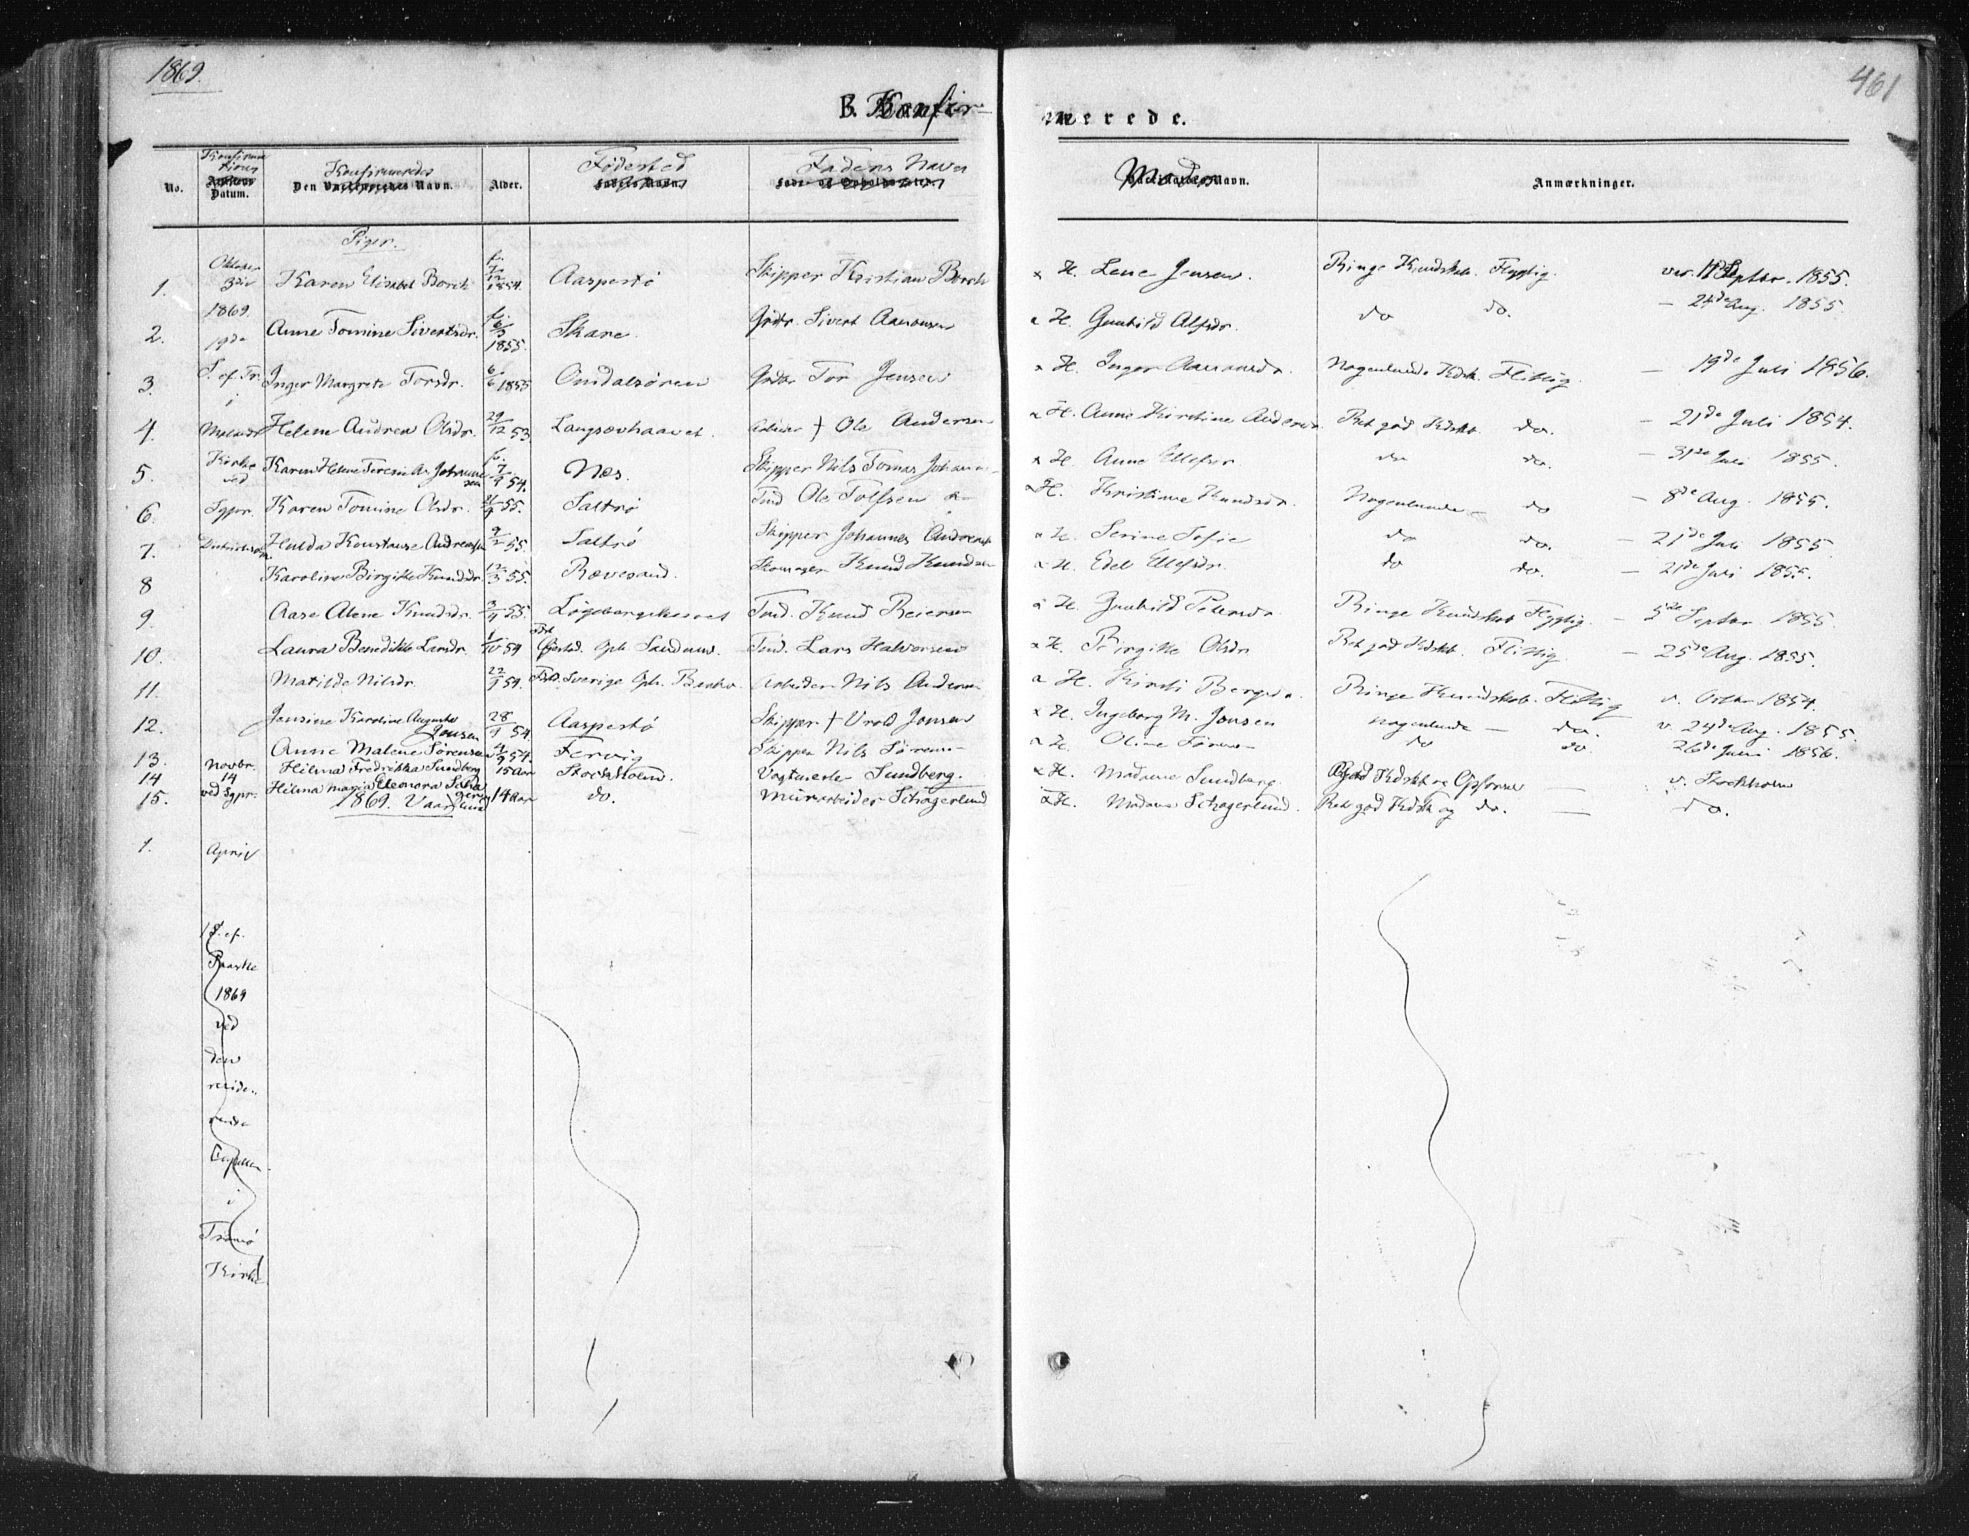 1869.
461
B. Konfir-
merede.
No.
Konfirma
tions
Datum.
Konfirmeredes
Den Navn.
Alder.
Fødested
Fadens Navn
Moder
Navn.
Anmærkninger.
Piger.
1. Oktober 3die Karen Elisabet Borch f. 7/12 1854. Aasperstø Skipper Kristian Borch x H. Lene Jensen. Ringe Kundskab. Flygtig. vac. Septbr. 1855.
2. 1869. 19de Anne Tomine Sivertsdr. f. 6/3 1855. Skare. Grdr. Sivert Aanonsen x H. Gunhild Alfsdr. do do. — 24de Aug. 1855.
3. S. ef. Tr. i Inger Margrete Torsdr. 6/6 1855 Omdalsøren Grdbr Tor Jensen x H. Inger Aanonsdr. Nogenlunde Kdsk. Flittig. — 19de Juli 1856.
4. Helene Andrea Olsdr. 29/12 53. Langsævhaavet. Arbeider † Ole Andersen x H. Anne Kirstine Ret god Kdskb. do. — 21de Juli 1854.
5. Kirke ved Karen Helene 7/9 54. Næs. Skipper Nils Tomas x H. Anne Ellefsdr do do. — 31te Juli 1855.
6. Sgpr. Karen Tomine Olsdr. 55. Saltrø Tind Ole Tolfsen x H. Kristiane Knudsdr. Nogenlunde — do — 8de Aug. 1855.
7. Hulda Konstanse Andreasen 9/2 55. Saltrø Skipper Johannes Andreasen x H. Serine Sofie do do. — 21de Juli 1855
8 Karoline Birgitte Knudsdr. 12/3 55. Rævesand. Skomager Knud Knudsen x H. Edel Ellefsdr. do do. — 21de Juli 1855.
9. Aase Alene Knudsdr. 3/4 55. Tind. Knud Reiersen x H. Gunhild Petersdr Ringe Kundskab Flygtig — 5te Septbr 1855.
10. Laura Benedikte Larsdr. 1/10 54 Født Øiestad. Oph. Sandum. Tind. Lars Halvorsen x H. Birgitte Olsdr Ret god Kdskb. Flittig. — 25de Aug. 1855.
11. Matilde Nilsdr. 22/9 54. Født. Sverige Oph. Arbeider Nils Andersen x H. Kirsti Ringe Kundskab. Flittig v. Octbr 1854.
12. Jensine Karoline Augusta Jonsen 28/9 54. Aasperstø Skipper † Vrold Jonsen x H. Ingeborg M. Jonsen nogenlunde — do. v. 24de Aug. 1855
13. Anne Malene Sørensen 54. Fervig Skipper Nils Sørensen x H. Oline do do 26de Juni 1856.
14 Novbr. 14 Hilma Fredrikka Sundberg 15 Aar Stockholm. Vagtmester Sundberg. x H. Madame Sundberg God Kdskb og Opførsel — v. Stockholm
15. ved Sgpr. Hilma Maria Eleonora Schagerlund 14 Aar do. Murarbeider Schagerlund x H. Madam Schagerlund. Ret god Kdsk og do. — do.
1869. Vaar
1. April
1 S. ef.
Paaske
1869
ved
den
reside-
rende
Capellan
i
Tromø
Kirke